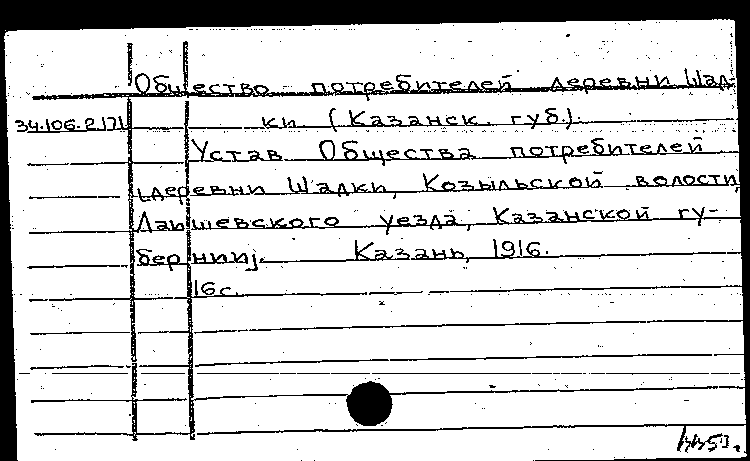 Общество потребителей деревни Шад-
34.106.2.171 ки (Казанск. губ.).
Устав Общества потребителей
[деревни Шадки, Козыльской волости,
Лаишевского уезда, Казанской гу-
бернии]. Казань, 1916.
16 с.